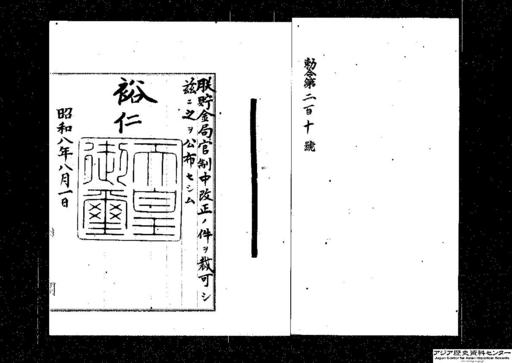 勅令第二百十號
朕貯金局官制中改正ノ件ヲ裁可シ
茲ニ之ヲ公布セシム
裕仁
天皇
御璽
昭和八年八月一日
アジア歴史資料センター
Japan Center for Asian Historical Records